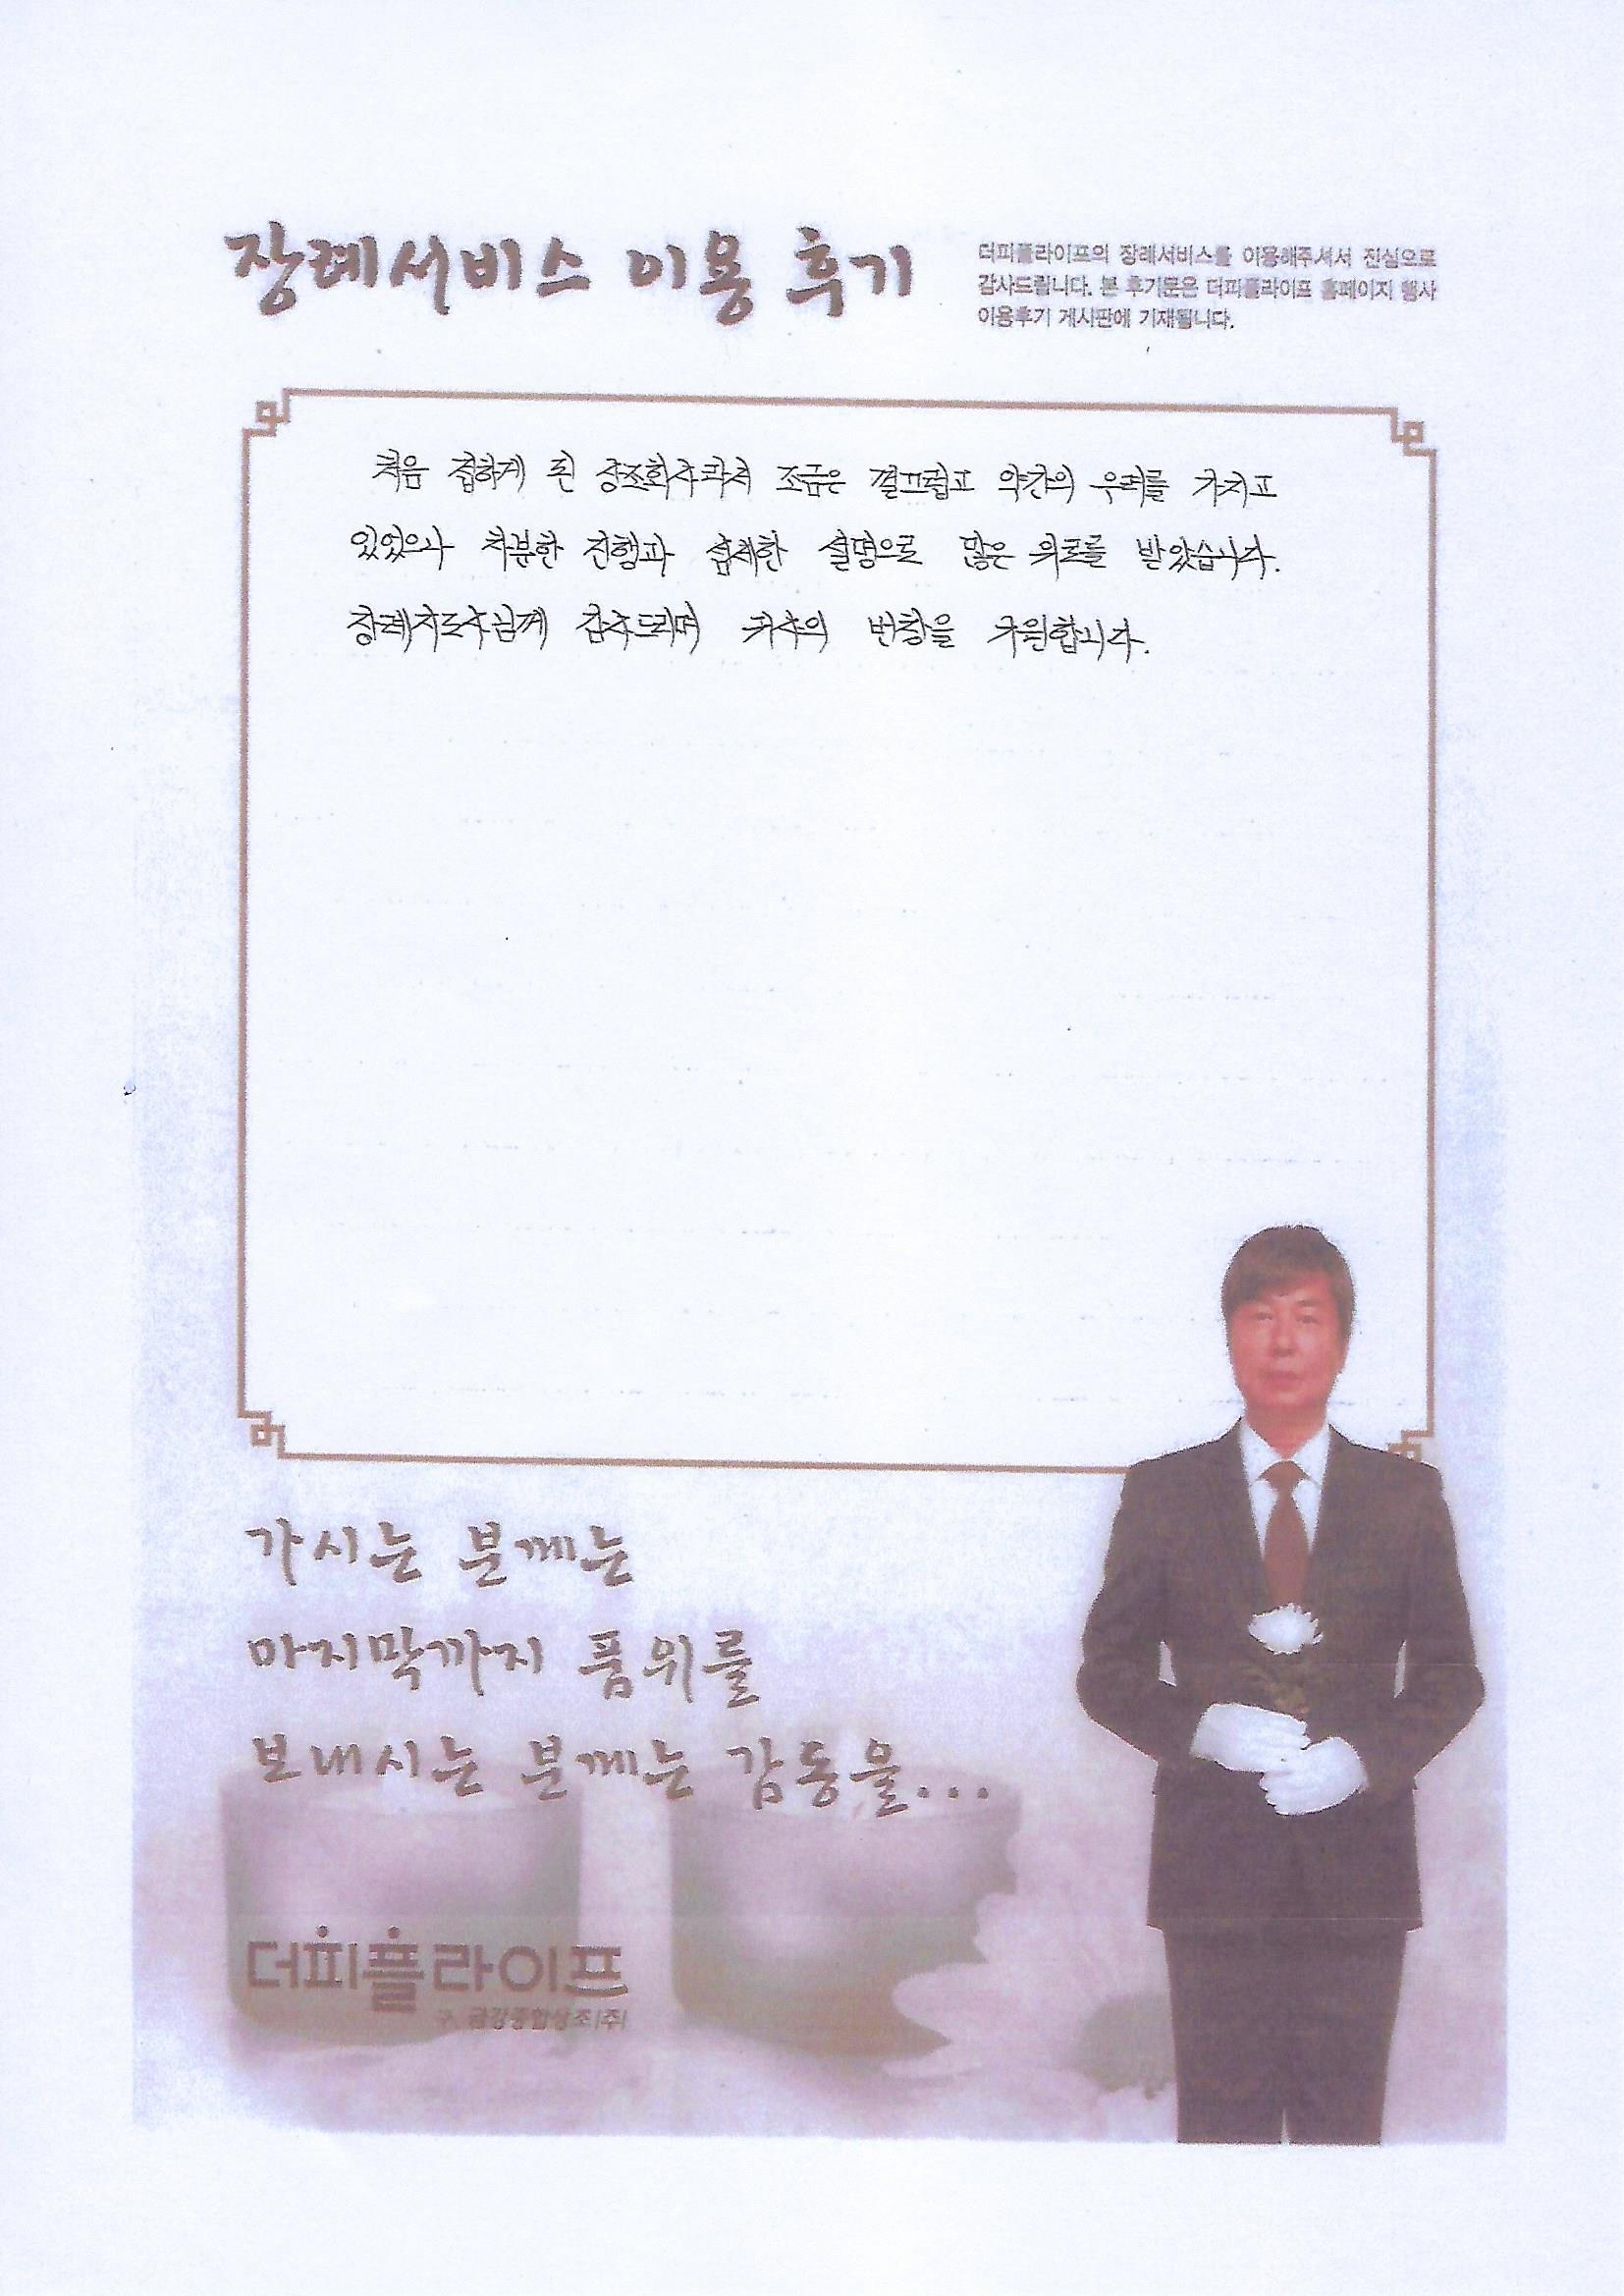 장례서비스 이용 후기
더피플라이프의 장례서비스를 이용해주셔서 진심으로
감사드립니다. 본 후기문은 더피플라이프 홈페이지 행사
이용후기 게시판에 기재됩니다.
처음 접하게 된 상조회사라서 조금은 껄끄럽고 약간의 우려를 가지고
있었으나 차분한 진행과 섬세한 설명으로 많은 위로를 받았습니다.
장례지도사님께 감사드리며 귀사의 번창을 기원합니다.
가시는 분께는
마지막까지 품위를
보내시는 분께는 감동을...
더피플라이프
구. 금강종합상조(주)